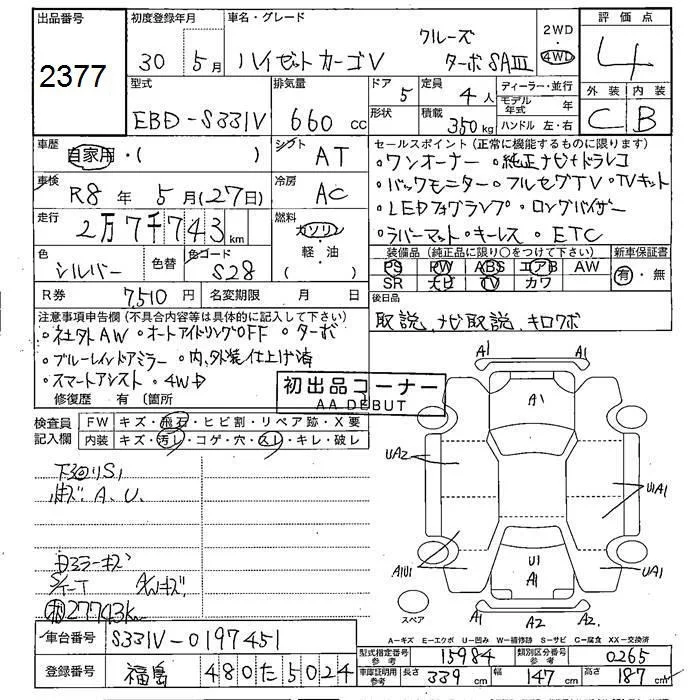 出品番号
2377
初度登録年月
30 5月
車名・グレード
ハイゼットカーゴV
クルーズ
ターボSAIII
2WD
4WD
評価点
4
外装 内装
C B
型式
EBD-S331V
排気量
660 cc
ドア
5
形状
定員
4人
積載
350kg
ディーラー・並行
モデル年式 年
ハンドル 左・右
車歴
自家用・( )
シフト
AT
車検
R8年5月(27日)
冷房
AC
走行
2万7千743km
燃料
ガソリン
軽・油
( )
色
シルバー
色替
色コード
S28
R券
7,510円
名変期限 月 日
セールスポイント(正常に機能するものに限ります)
・ワンオーナー・純正ナビ+ドラレコ
・バックモニター・フルセグTV・TVキット
・LEDフォグランプ・ロングバイザー
・ラバーマット・キーレス・ETC
装備品(純正品に限り○をつけて下さい)
PS PW ABS エアB AW
SR ナビ TV カワ
新車保証書
有・無
後日品
取説、ナビ取説、キロクボ
注意事項申告欄(不具合内容等は具体的に記入して下さい)
・社外AW・オートアイドリングOFF・ターボ
・ブルーレインドアミラー・内、外装仕上げ済
・スマートアシスト・4WD
修復歴 有 〔箇所
初出品コーナー
AA DEBUT
検査員記入欄
FW キズ・飛石・ヒビ割・リペア跡・X要
内装 キズ・汚レ・コゲ・穴・スレ・キレ・破レ
下回りS1
キズ A、U、
S/T-T A/Wキズ
27743K
車台番号
S331V-0197451
登録番号
福島 480 た 5024
A1 A1
A1
UA2
U1A1
A1U1
U1
A1
UA1
A1 A2 A2
スペア
A-キズ E-エクボ U-凹み W-補修跡 S-サビ C-腐食 XX-交換済
型式指定番号 参考
15984
類別区分番号 参考
0265
車庫証明用 参考
長さ 339 cm
幅 147 cm
高さ 187 cm